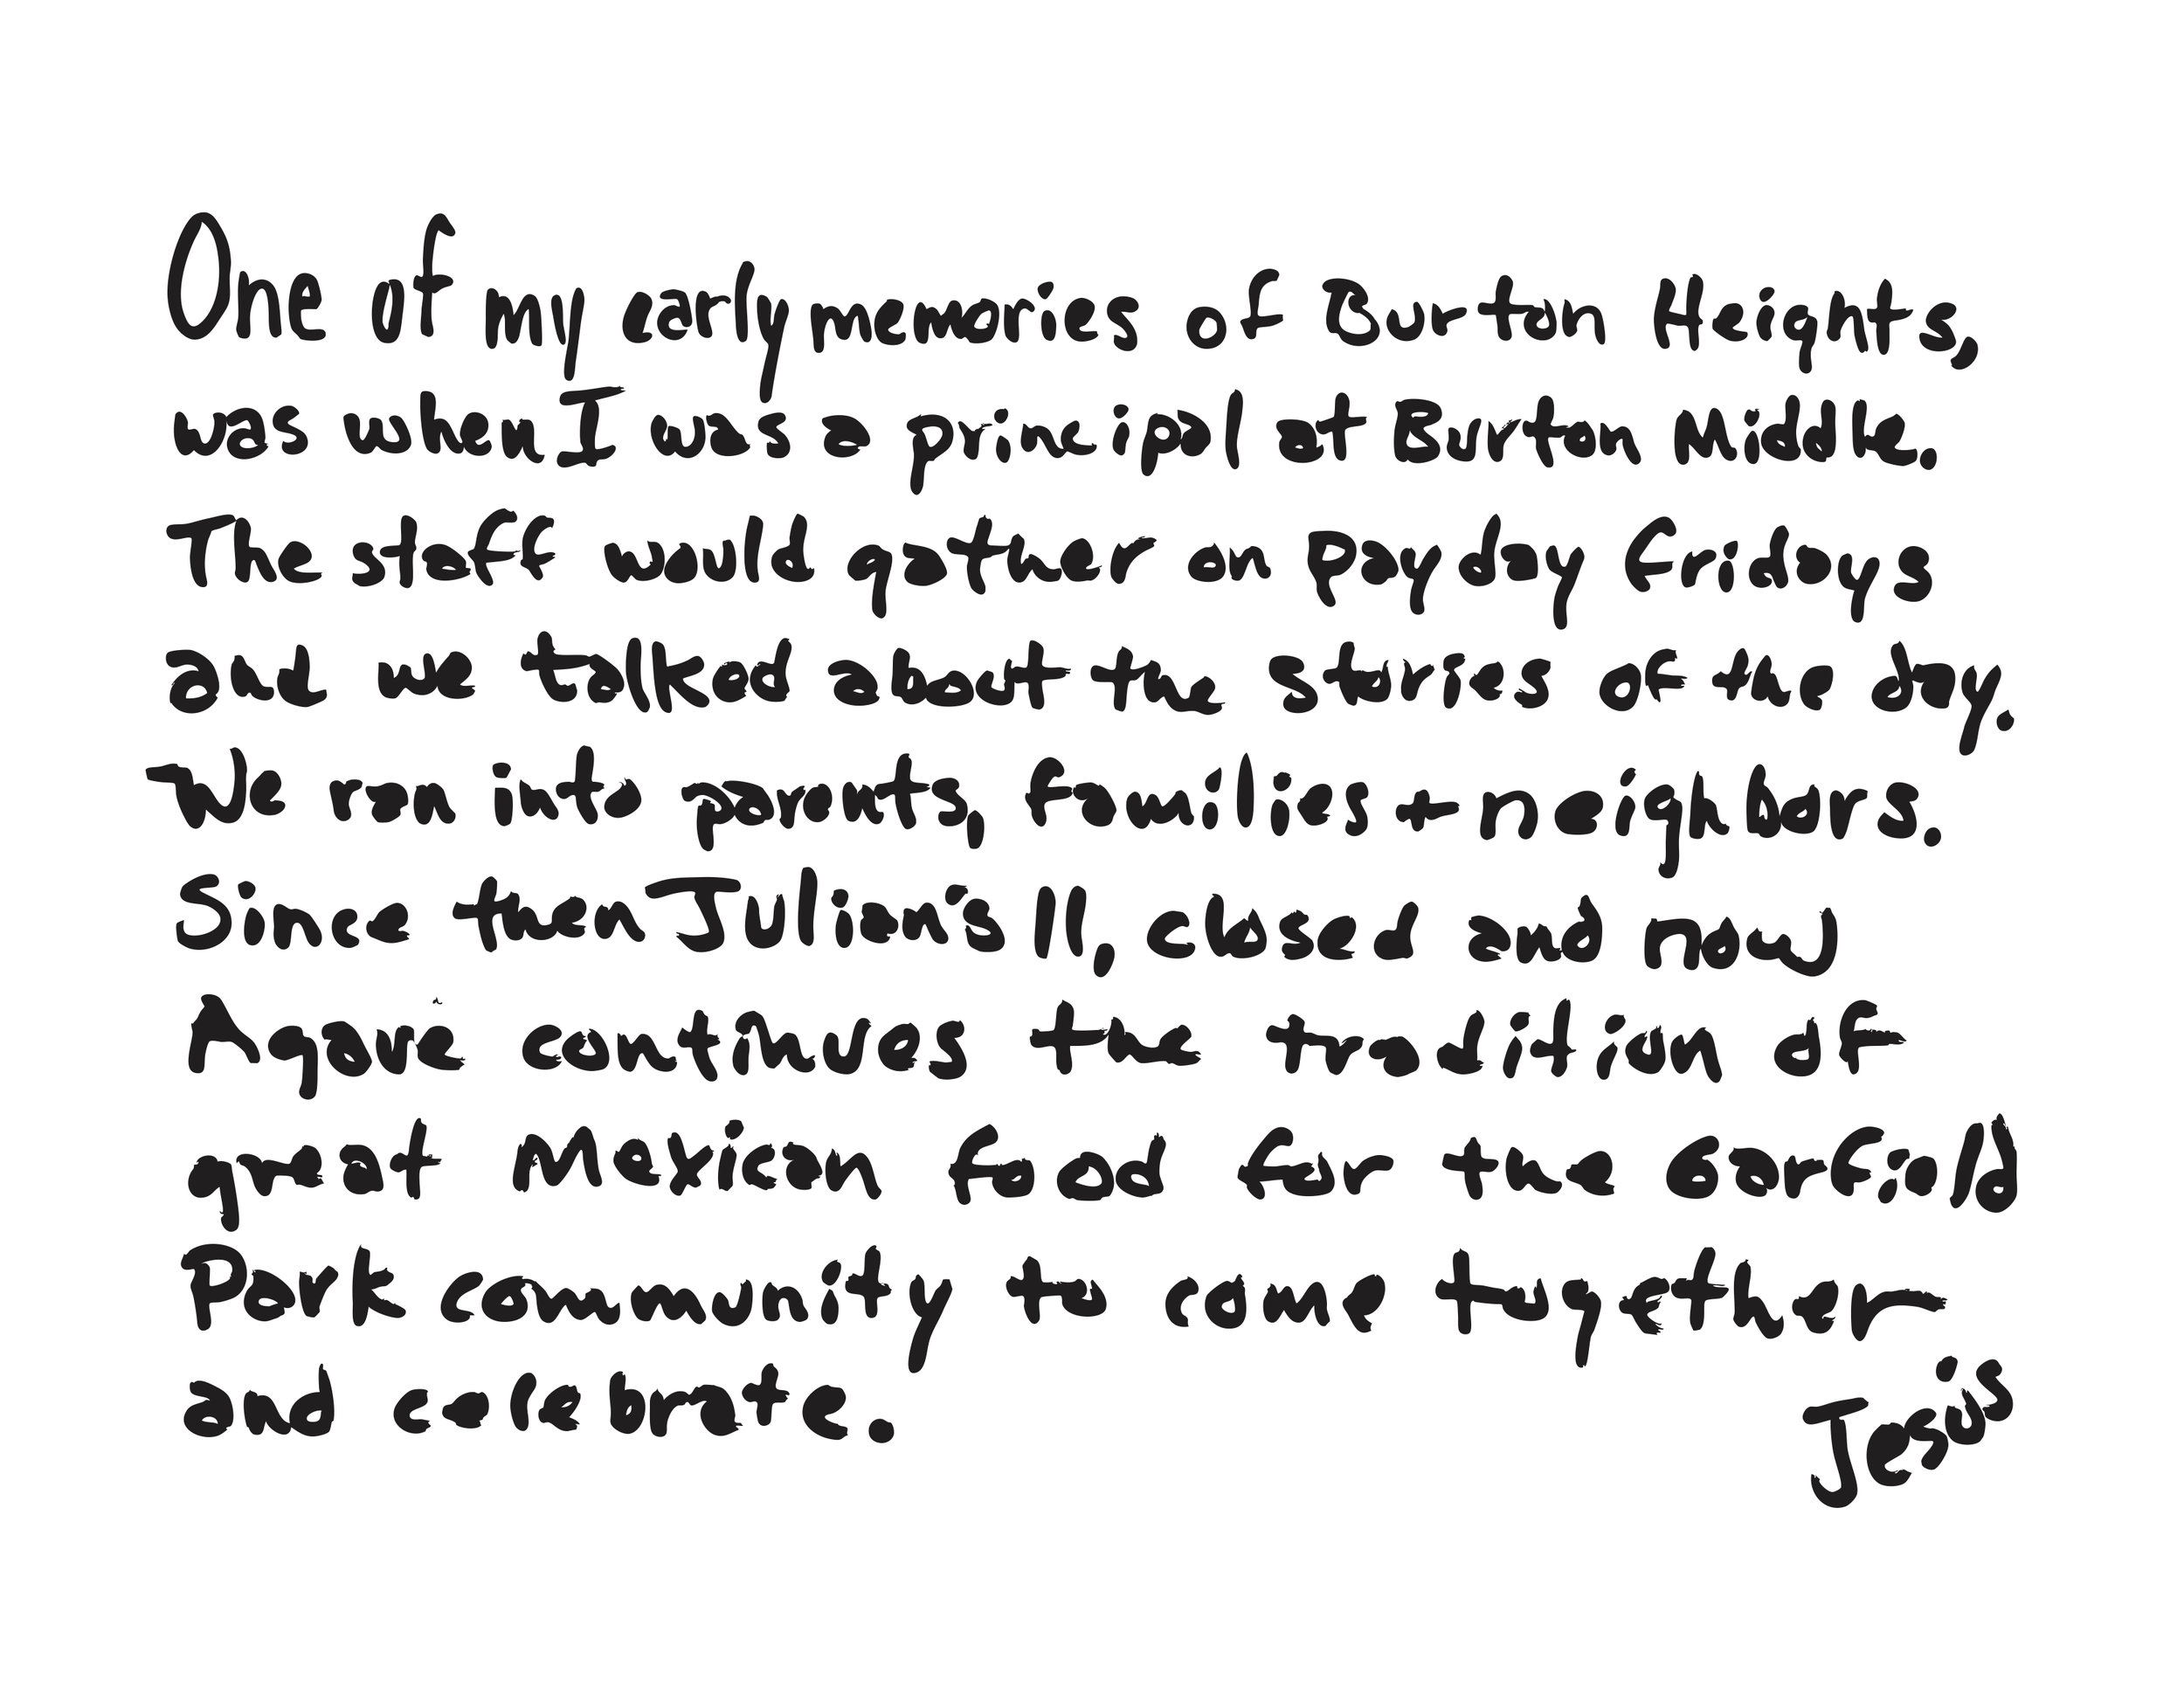 One of my early memories of Burton Heights,
was when I was a principal at Burton Middle.
The staff would gather on payday fridays
and we talked about the stories of the day.
We ran into parents, families + neighbors.
Since then Juliani's 11, closed and now
Agave continues the tradition of
great Mexican food for the Garfield
Park community to come together
and celebrate.
Jesús